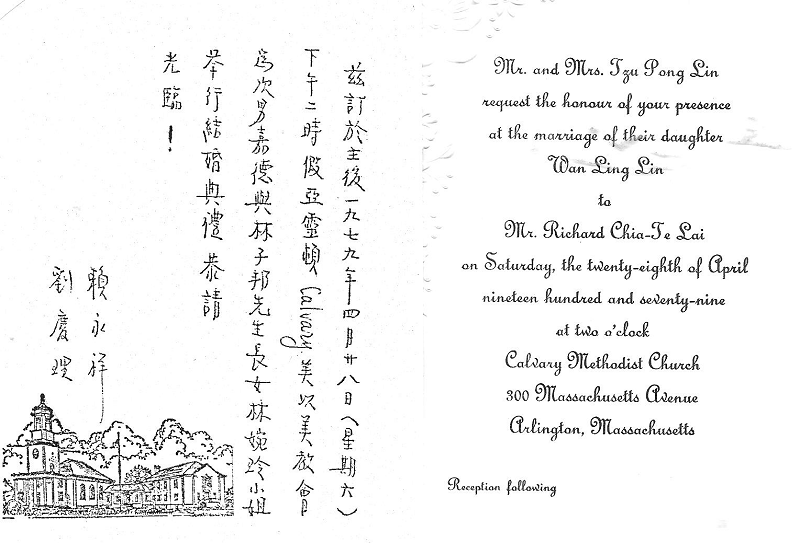 茲訂於主後一九七九年四月廿八日(星期六)
下午二時假亞靈頓Calvary美以美教會
為次男嘉德與林子邦先生長女林婉玲小姐
举行結婚典禮恭請
光臨！
賴永祥
劉慶理
Mr. and Mrs. Tzu Pong Lin
request the honour of your presence
at the marriage of their daughter
Wan Ling Lin
to
Mr. Richard Chia-Te Lai
on Saturday, the twenty-eighth of April
nineteen hundred and seventy-nine
at two o'clock
Calvary Methodist Church
300 Massachusetts Avenue
Arlington, Massachusetts
Reception following